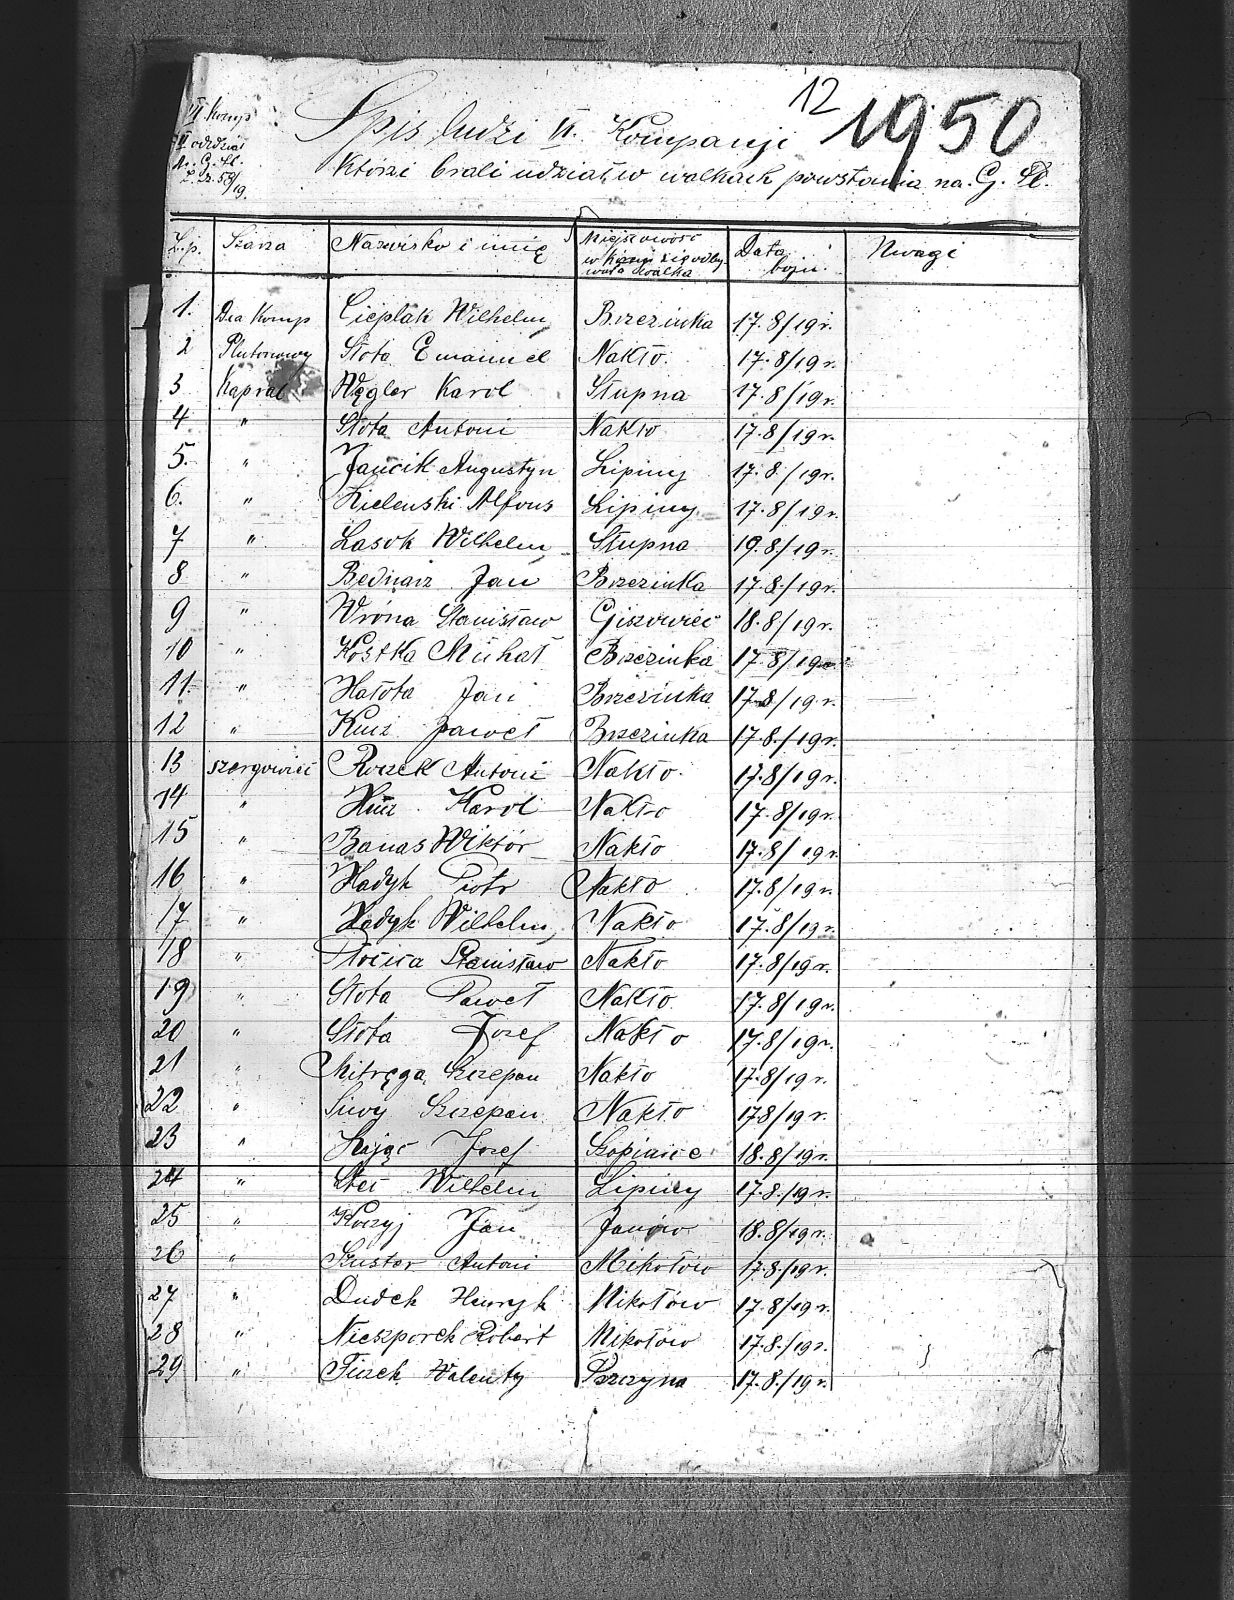 12 1950
VI Komp.
II oddział
L. dz. 59/19.
Spis ludzi VI. Kompanji
którzi brali udział w walkach powstania na G. Śl.
L.p. Szarża Nazwisko i imię Miejscowość w któri się odbywała walka Data boju Uwagi
1. Dca Komp Cieplak Wilhelm Brzezinka 17.8/19 r.
2 Plutonowy Słota Emanuel Nakło. 17.8/19 r.
3 Kapral Węgler Karol Słupna 17.8/19 r.
4 " Słota Antoni Nakło 17.8/19 r.
5. " Jańcik Augustyn Lipiny 17.8./19 r.
6. " Zielenski Alfons Lipiny 17.8/19 r.
7 " Lasok Wilhelm Słupna 19.8/19 r.
8 " Bednarz Jan Brzezinka 17.8./19 r.
9 " Wróna Stanisław Giszowiec 18.8/19 r.
10 " Kostka Michał Brzezinka 17.8/19 r.
11. " Hałota Jan Brzezinka 17.8/19 r.
12 " Kurz Paweł Brzezinka 17.8./19 r.
13 szergowiec Rozek Antoni Nakło. 17.8/19 r.
14 " Karol Nakło 17.8/19 r.
15 " Banas Wiktór Nakło 17.8/19 r.
16 " Hadyk Piotr Nakło 17.8/19 r.
17 " Hadyk Wilhelm Nakło 17.8/19 r.
18 " Stanisław Nakło 17.8/19 r.
19 " Słota Paweł Nakło 17.8/19 r.
20 " Słota Jozef Nakło 17.8/19 r.
21 " Mitręga Szczepan Nakło 17.8/19 r.
22 " Siwy Szczepan Nakło 17.8/19 r.
23 " Zając Jozef Szopienice 18.8/19 r.
24 " Wilhelm Lipiny 17.8./19 r.
25 " Koczyj Jan Janów 18.8/19 r.
26 " Szuster Antoni Mikołów 17.8./19 r.
27 " Dudek Henryk Mikołów 17.8/19 r.
28 " Nieszporek Robert Mikołów 17.8./19 r.
29 " Walenty Pszczyna 17.8./19 r.